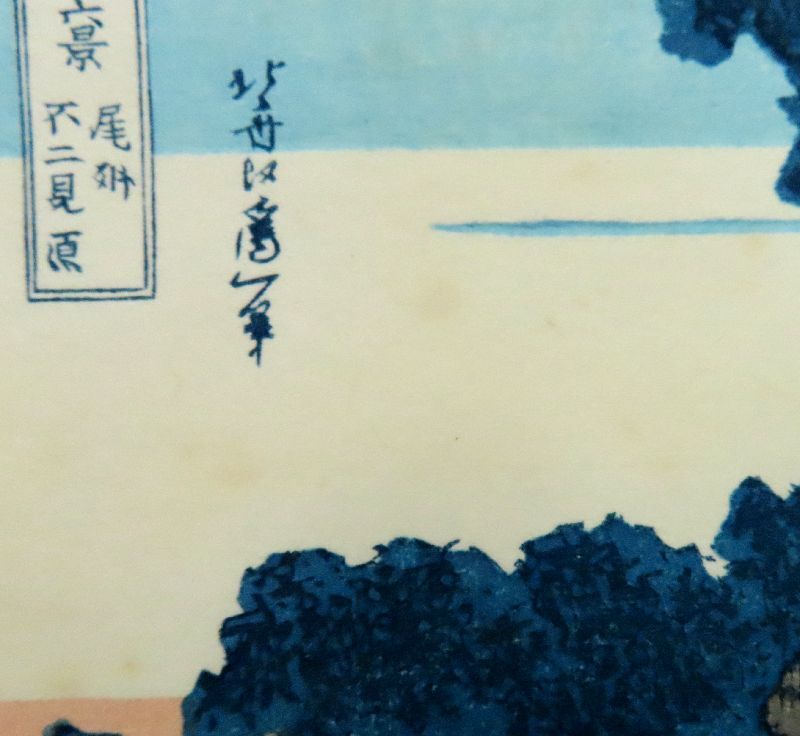 六景
尾州
不二見原
北斎改為一筆